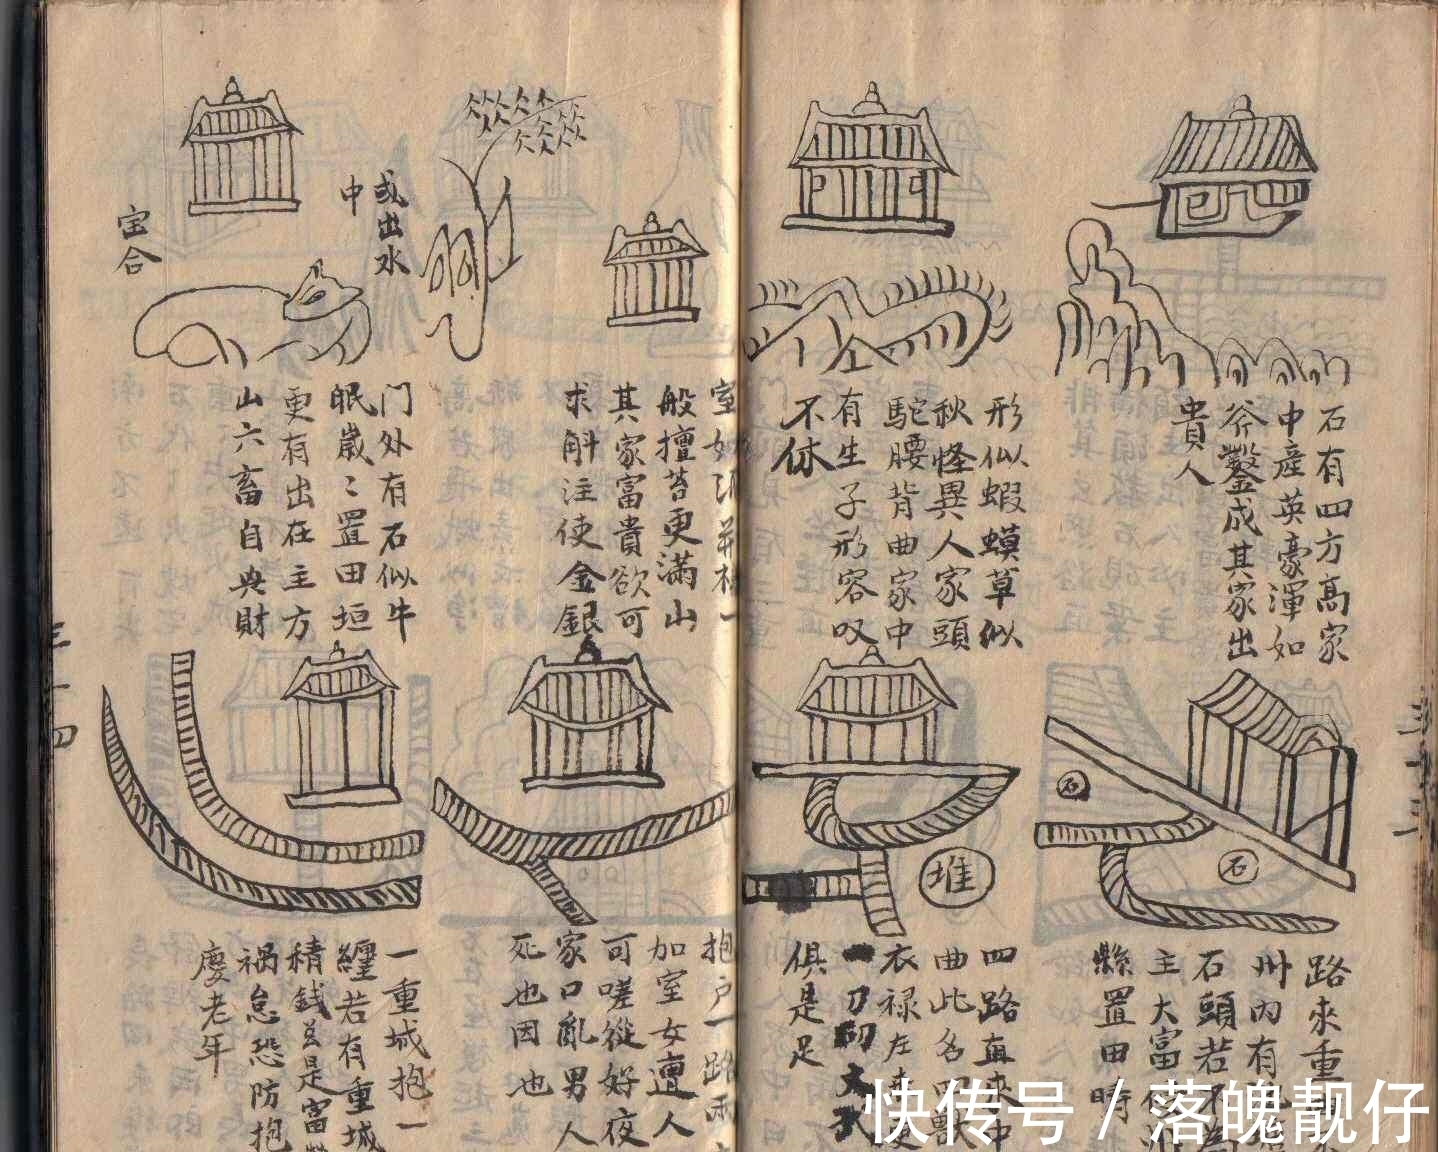 石有四方高家
中產英豪渾如
斧鑿成其家出
貴人
形似蝦蟆草似
秋怪異人家頭
駝腰背曲家中
有生子形容叹
不休
般擅苔更满山
其家富貴欲可
求斛注使金銀
或出水
中
宝合
门外有石似牛
眠嵗〻置田垣
更有出在主方
山六畜自典財
石
石
路來重
州内有
石頭若不為
主大富
縣置田時
堆
四路直來中
曲此名四獸
衣禄左
一刀
俱是足
抱户一路两
加室女遭人
可嗟從好夜
家口亂男人
死也因也
一重城抱一
纏若有重城
積錢
是富
祸怠恐防抱
慶老年
三十三
三十四
快传号 / 落魄靓仔